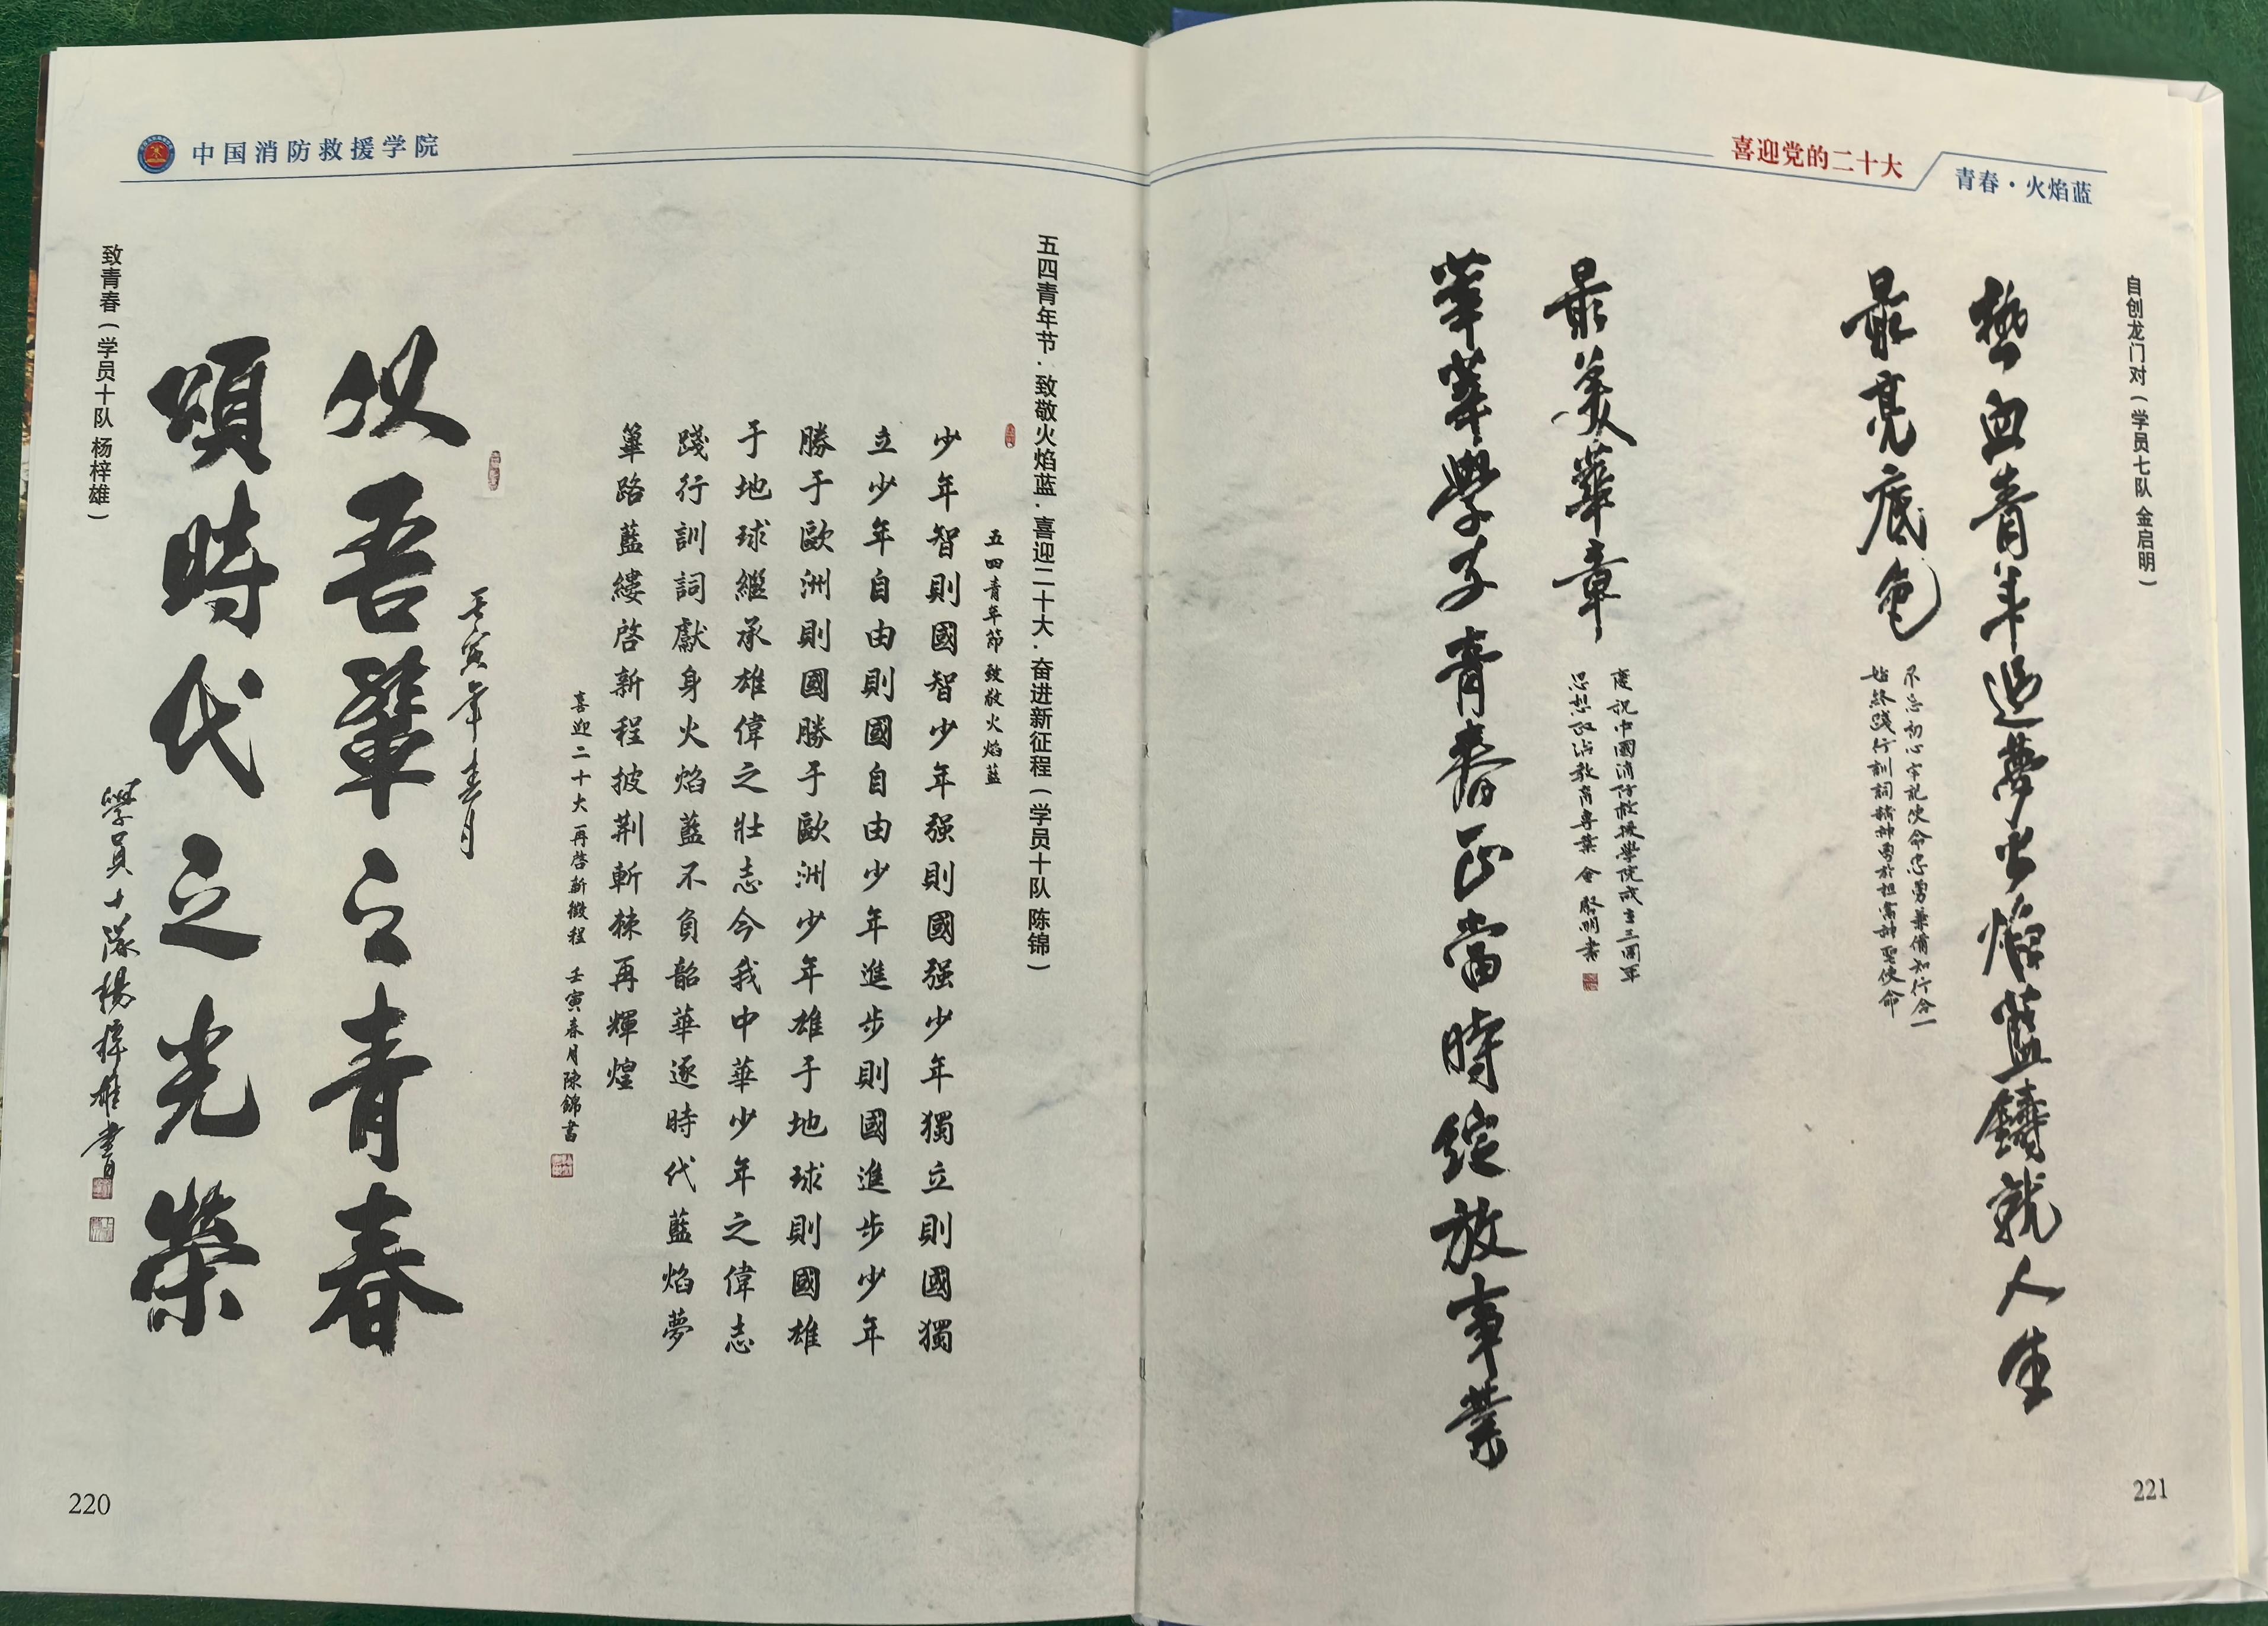 中国消防救援学院
五四青年节·致敬火焰蓝·喜迎二十大·奋进新征程(学员十队 陈锦)
五四青年節 致敬火焰藍
少年智則國智少年强則國强少年獨立則國獨
立少年自由則國自由少年進步則國進步少年
勝于歐洲則國勝于歐洲少年雄于地球則國雄
于地球繼承雄偉之壯志今我中華少年之偉志
踐行訓詞獻身火焰藍不負韶華逐時代藍焰夢
篳路藍縷啓新程披荆斬棘再輝煌
喜迎二十大再啓新徵程 壬寅春月陳錦書
壬寅年春月
以吾輩之青春
頌時代之光榮
學員十隊楊梓雄書
致青春(学员十队 杨梓雄)
220
喜迎党的二十大
青春·火焰蓝
自创龙门对(学员七队 金启明)
熱血青年追夢火焰藍鑄就人生
最亮底色
不忘初心牢記使命忠勇兼備知行合一
始終踐行訓詞精神勇於担當神聖使命
最美華章
慶祝中國消防救援學院成立三周年
思想政治教育專業 金啓明書
莘莘學子青春正當時綻放事業
221